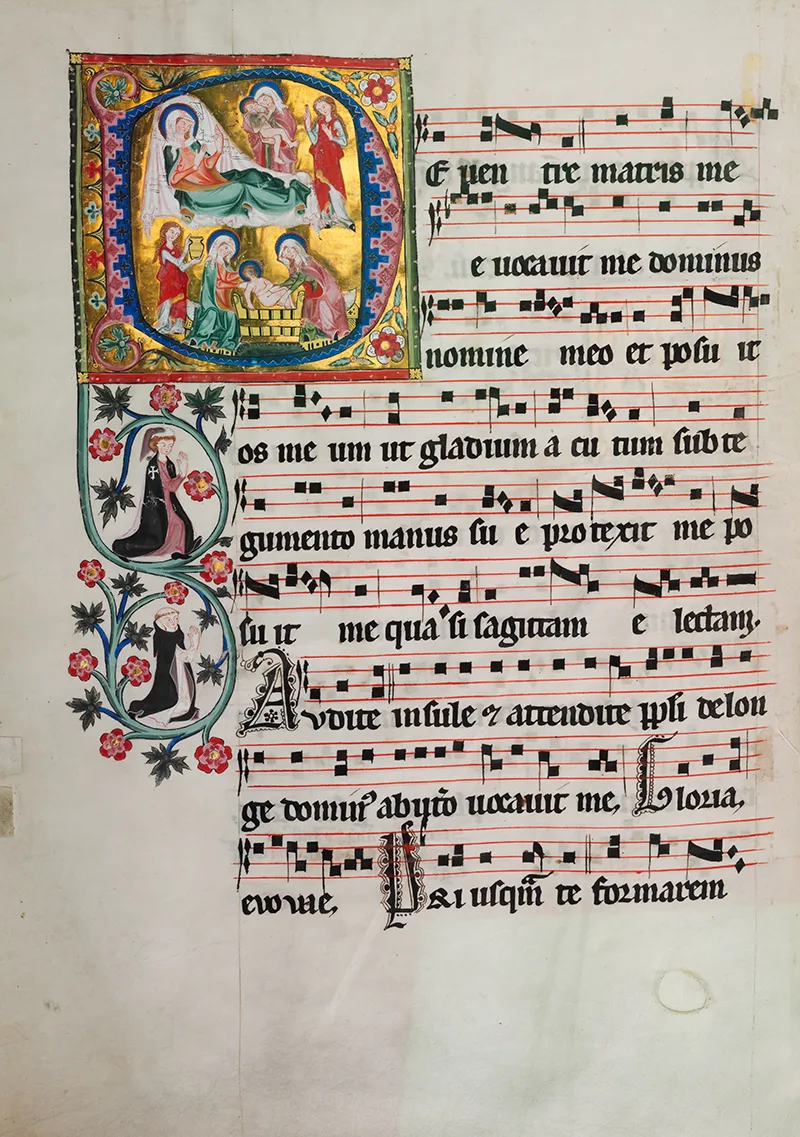 DE uen tre matris me
e uocauit me dominus
nomine meo et posu it
os me um ut gladium a cu tum sub te
gumento manus su e protexit me po
su it me qua si sagittam e lectam.
Avdite insule ⁊ attendite ppſi de lon
ge dominꝰ ab ut̾o uocauit me, Gloria,
evovae, P&i usqm̄ te formarem